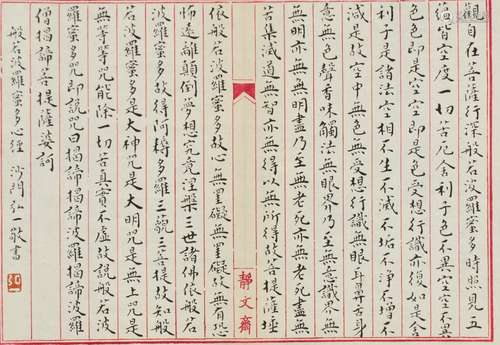 觀自在菩薩行深般若波羅蜜多時照見五
蘊皆空度一切苦厄舍利子色不異空空不異
色色即是空空即是色受想行識亦復如是舍
利子是諸法空相不生不滅不垢不淨不增不
減是故空中無色無受想行識無眼耳鼻舌身
意無色聲香味觸法無眼界乃至無意識界無
無明亦無無明盡乃至無老死亦無老死盡無
苦集滅道無智亦無得以無所得故菩提薩埵
靜文齋
依般若波羅蜜多故心無罣礙無罣礙故無有恐
怖遠離顛倒夢想究竟涅槃三世諸佛依般若
波羅蜜多故得阿耨多羅三藐三菩提故知般
若波羅蜜多是大神咒是大明咒是無上咒是
無等等咒能除一切苦真實不虛故說般若波
羅蜜多咒即說咒曰揭諦揭諦波羅揭諦波羅
僧揭諦菩提薩婆訶
般若波羅蜜多心經 沙門弘一敬書